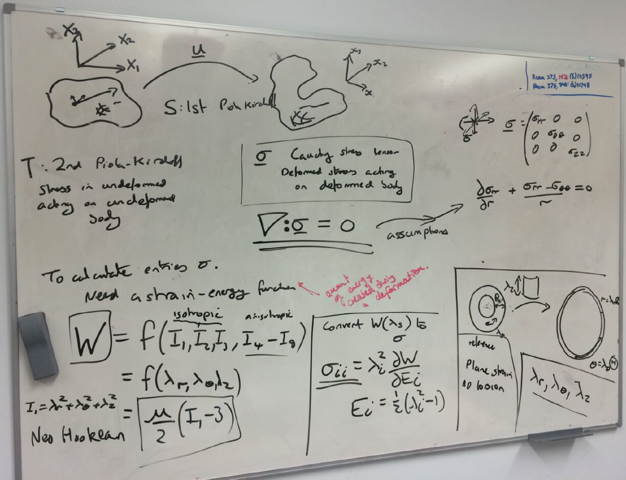 X₃
X₂
X₁
u
x₃
x₂
x
S: 1st Piola Kirchoff
T: 2nd Piola-Kirchoff
stress in undeformed
acting on undeformed
body
σ Cauchy stress tensor
Deformed stress acting
on deformed body
∇:σ = 0
assumptions
σ = (σrr 0 0
0 σθθ 0
0 0 σzz)
∂σrr/∂r + (σrr - σθθ)/r = 0
To calculate entries σ.
Need a strain-energy function
amount
of energy
created during
deformation.
isotropic
anisotropic
W = f(I₁, I₂, I₃, I₄ - I₉)
= f(λr, λθ, λz)
I₁ = λr² + λθ² + λz²
= μ/2 (I₁-3)
Neo Hookean
Convert W(λs) to
σ
σii = λi² ∂W/∂Ei
Ei = ½(λi²-1)
λz
Plane strain
no torsion
λr, λθ, λz